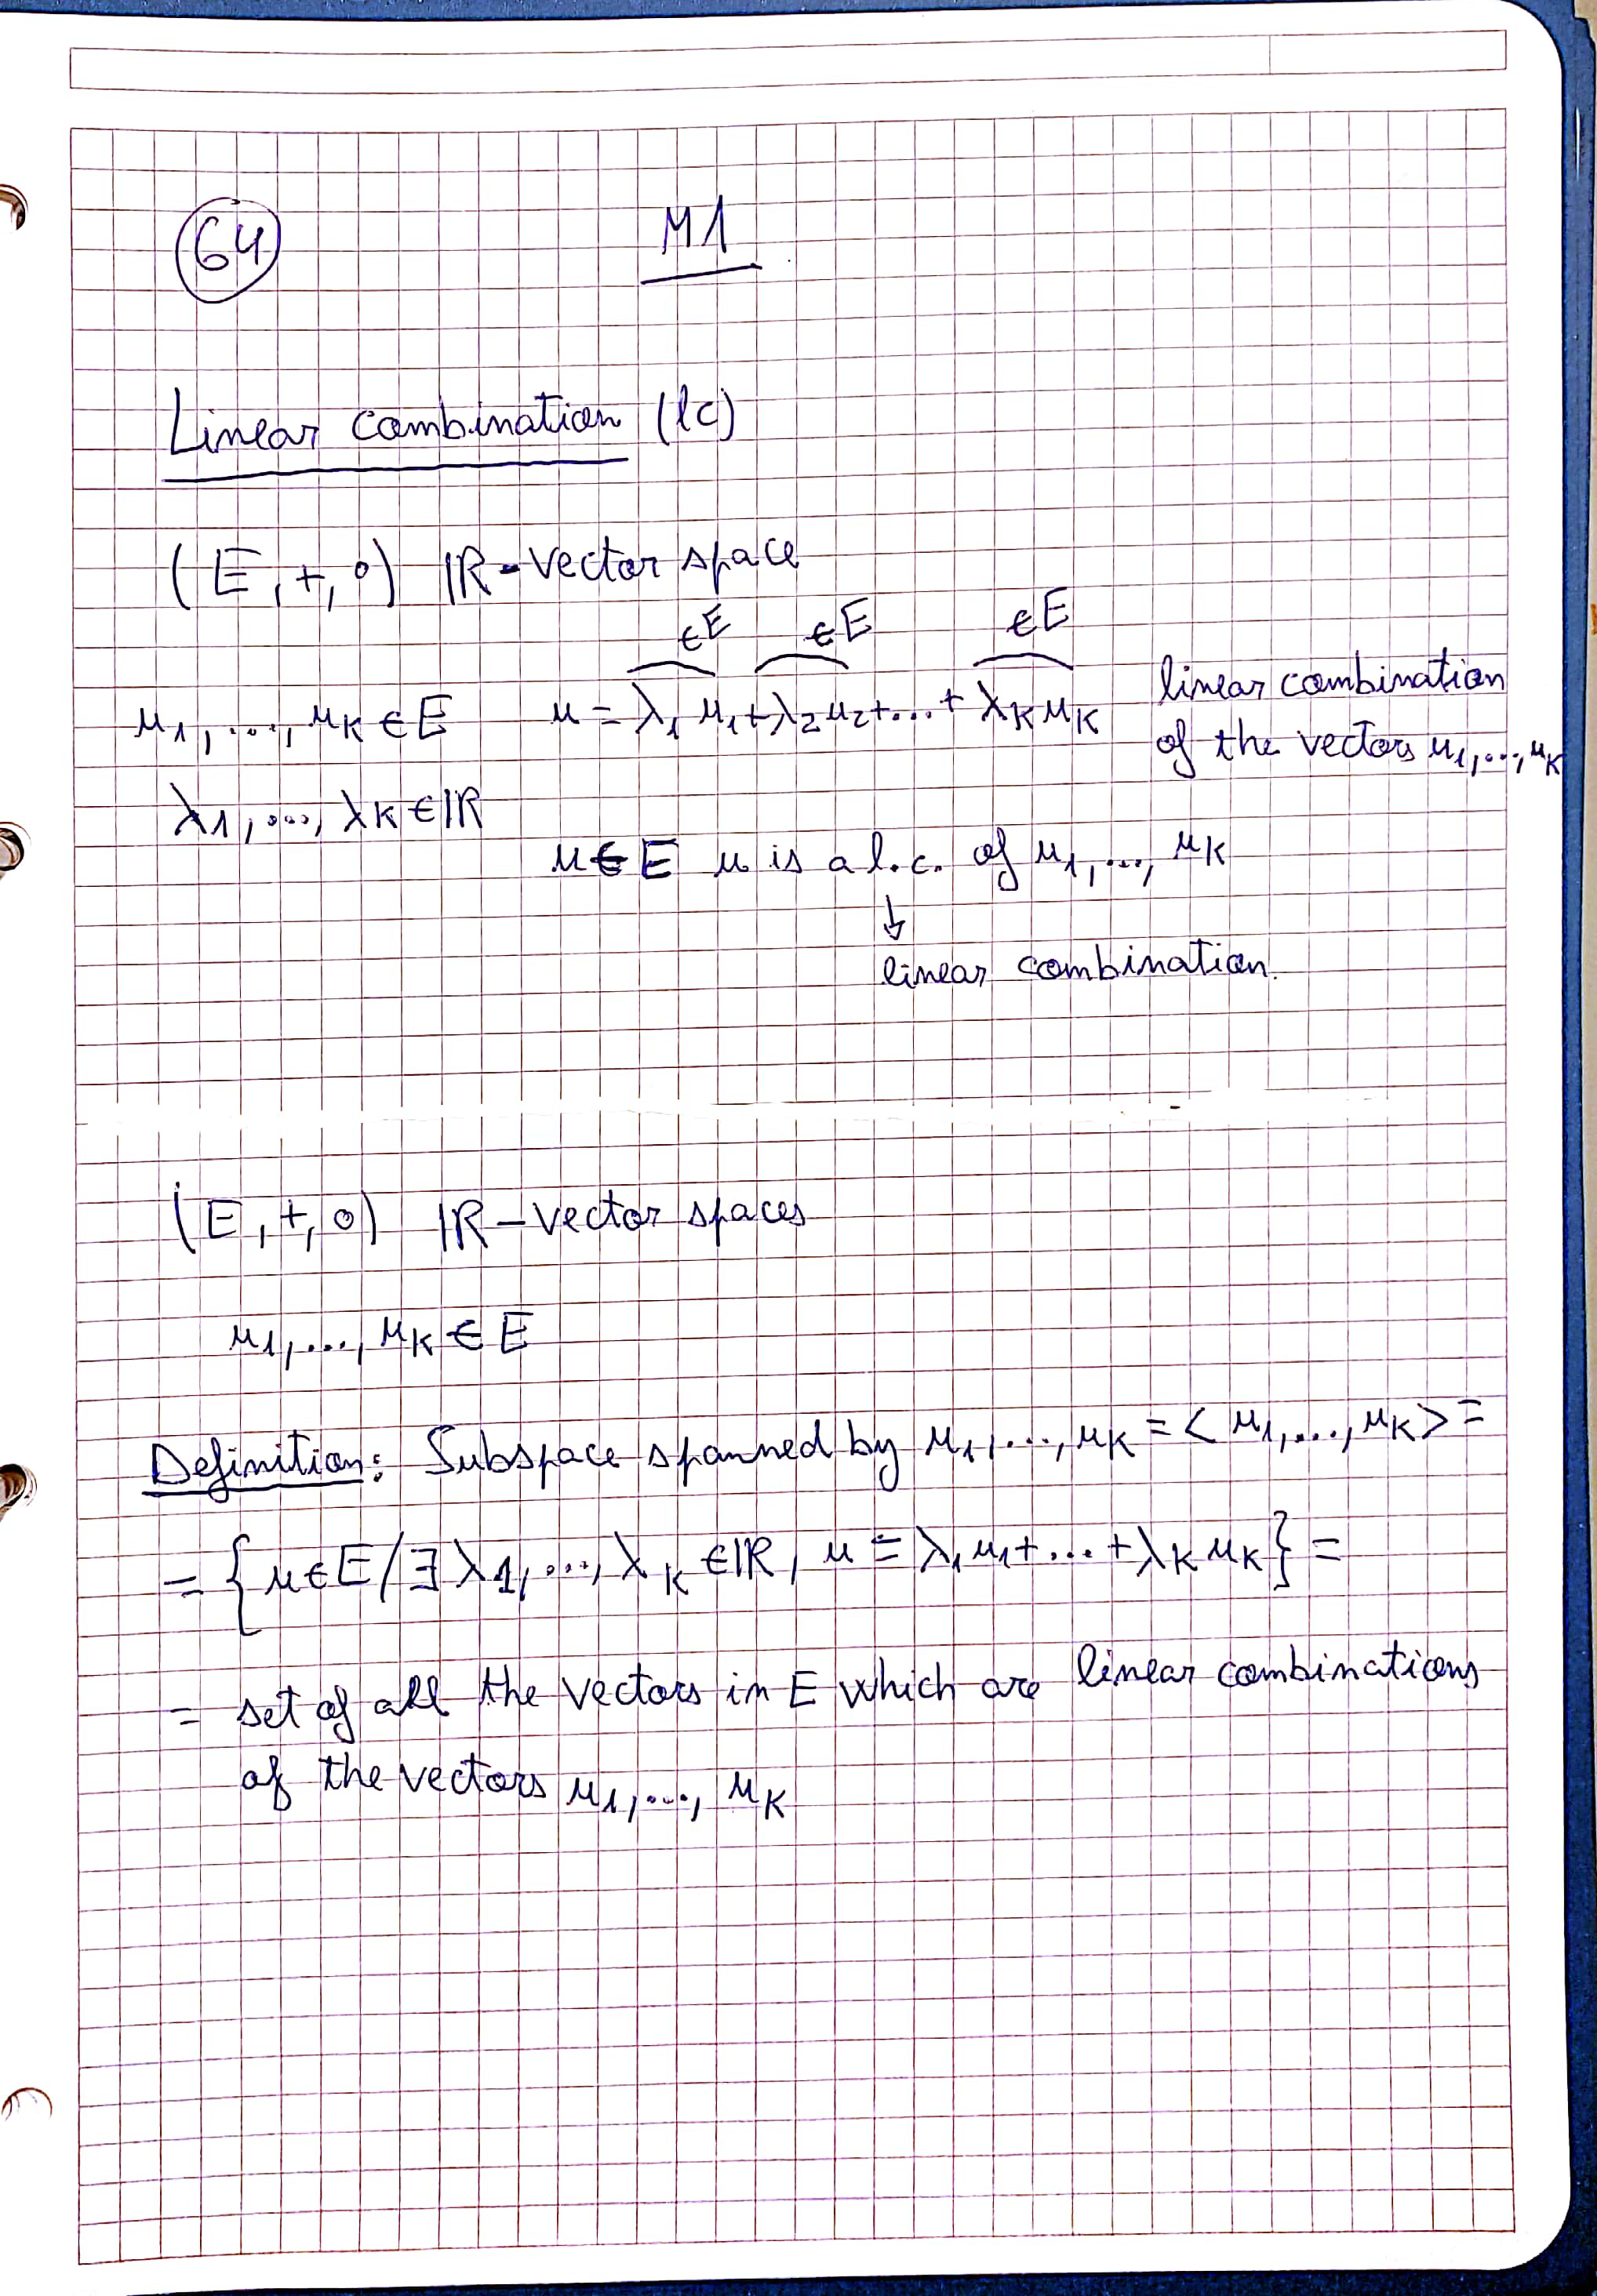 64
M1
Linear combination (lc)
(E, +, ∘) ℝ-vector space
∈E ∈E ∈E
u1, ..., uK ∈ E u = λ1 u1 + λ2 u2 + ... + λK uK linear combination
of the vectors u1, ..., uK
λ1, ..., λK ∈ ℝ
u ∈ E u is a l.c. of u1, ..., uK
↓
linear combination.
(E, +, ∘) ℝ-vector spaces
u1, ..., uK ∈ E
Definition: Subspace spanned by u1, ..., uK = < u1, ..., uK > =
= { u ∈ E / ∃ λ1, ..., λK ∈ ℝ, u = λ1 u1 + ... + λK uK } =
= set of all the vectors in E which are linear combinations
of the vectors u1, ..., uK